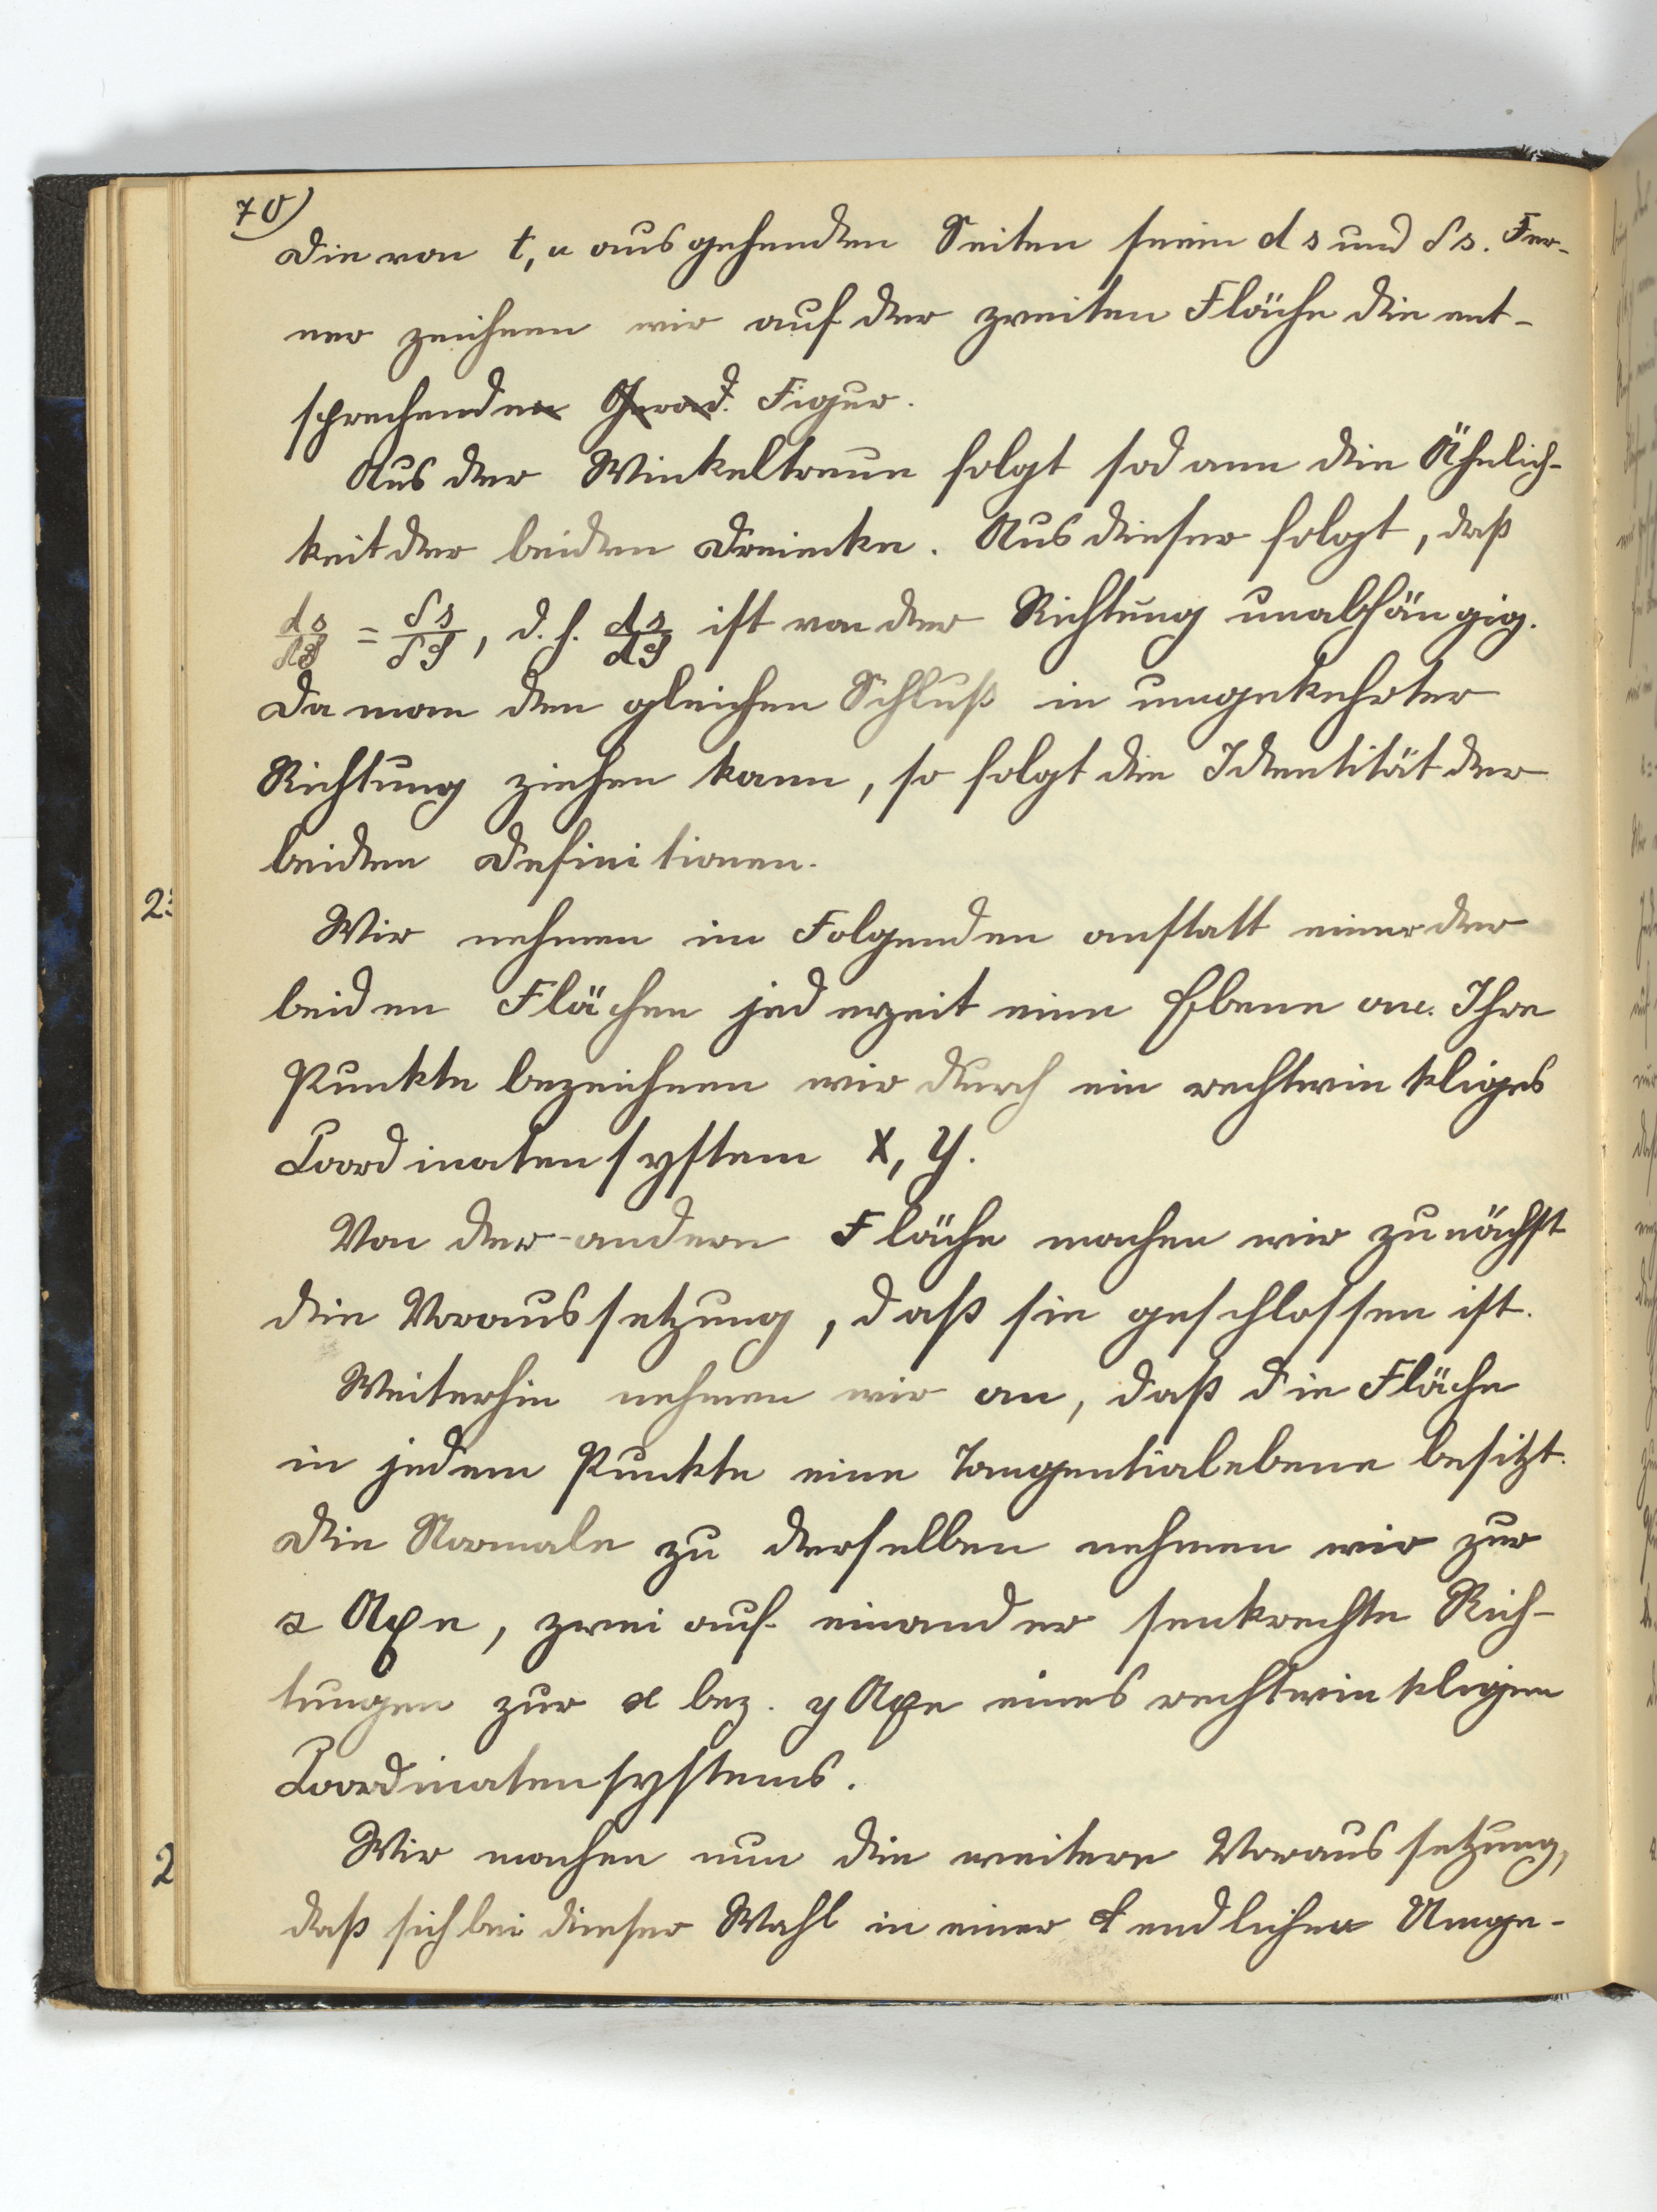 70)
Die von t, u ausgehenden Seiten seien ds und δs. Fer-
ner zeichnen wir auf der zweiten Fläche die ent-
sprechenden Gerad. Figur.
Aus der Winkeltreue folgt sodann die Ähnlich-
keit der beiden Dreiecke. Aus dieser folgt, daß
ds/dS = δs/δS, d. h. ds/dS ist von der Richtung unabhängig.
Da man den gleichen Schluß in umgekehrter
Richtung ziehen kann, so folgt die Identität der
beiden Definitionen.
Wir nehmen im Folgenden anstatt einer der
beiden Flächen jederzeit eine Ebene an. Ihre
Punkte bezeichnen wir durch ein rechtwinkliges
Coordinatensystem X, Y.
Von der andern Fläche machen wir zunächst
die Voraussetzung, daß sie geschlossen ist.
Weiterhin nehmen wir an, daß die Fläche
in jedem Punkte eine Tangentialebene besitzt.
Die Normale zu derselben nehmen wir zur
z Axe, zwei auf einander senkrechte Rich-
tungen zur x bez. y Axe eines rechtwinkligen
Coordinatensystems.
Wir machen nun die weitere Voraussetzung,
daß sich bei dieser Wahl in einer endlichen Umge-